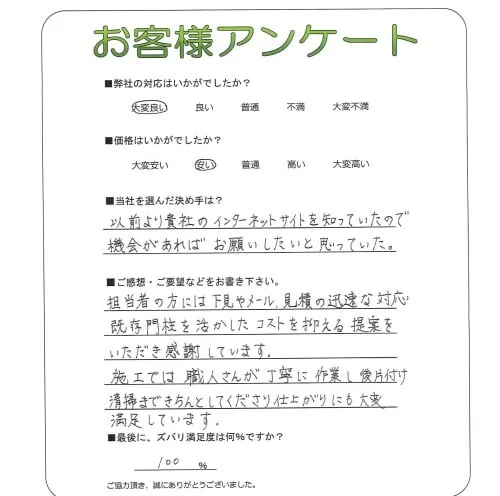 お客様アンケート
■弊社の対応はいかがでしたか？
大変良い　良い　普通　不満　大変不満
■価格はいかがでしたか？
大変安い　安い　普通　高い　大変高い
■当社を選んだ決め手は？
以前より貴社のインターネットサイトを知っていたので
機会があればお願いしたいと思っていた。
■ご感想・ご要望などをお書き下さい。
担当者の方には下見やメール、見積の迅速な対応
既存門柱を活かしたコストを抑える提案を
いただき感謝しています。
施工では職人さんが丁寧に作業し後片付け
清掃まできちんとしてくださり仕上がりにも大変
満足しています。
■最後に、ズバリ満足度は何％ですか？
100　％
ご協力頂き、誠にありがとうございました。